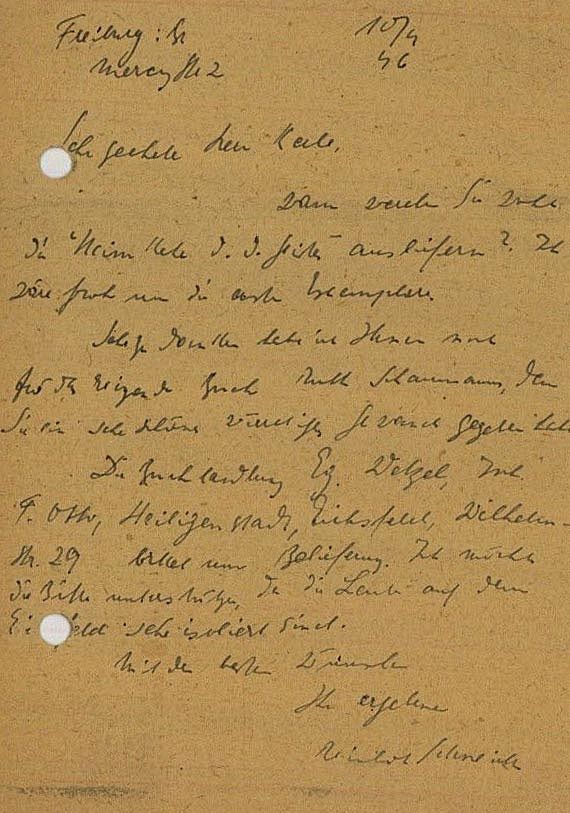 Freiburg i. Br
Mercystr 2
10/4
46
Sehr geehrter Herr Kerle,
wann werden Sie wohl
die "Heimkehr d. d. Geistes" ausliefern? Ich
wäre froh um die ersten Exemplare.
danken habe ich Ihnen noch
für das reizende Buch Ruth Schaumanns, dem
Sie ein sehr schönes würdiges Gewand gegeben haben
Die Buchhandlung Eg. Wetzel, Inh.
F. Otto, Heiligenstadt, Eichsfeld, Wilhelm-
Str. 29 bittet um Belieferung. Ich möchte
die Bitte unterstützen, da die Leute auf dem
sehr isoliert sind.
Mit den besten Wünschen
Ihr ergebener
Reinhold Schneider